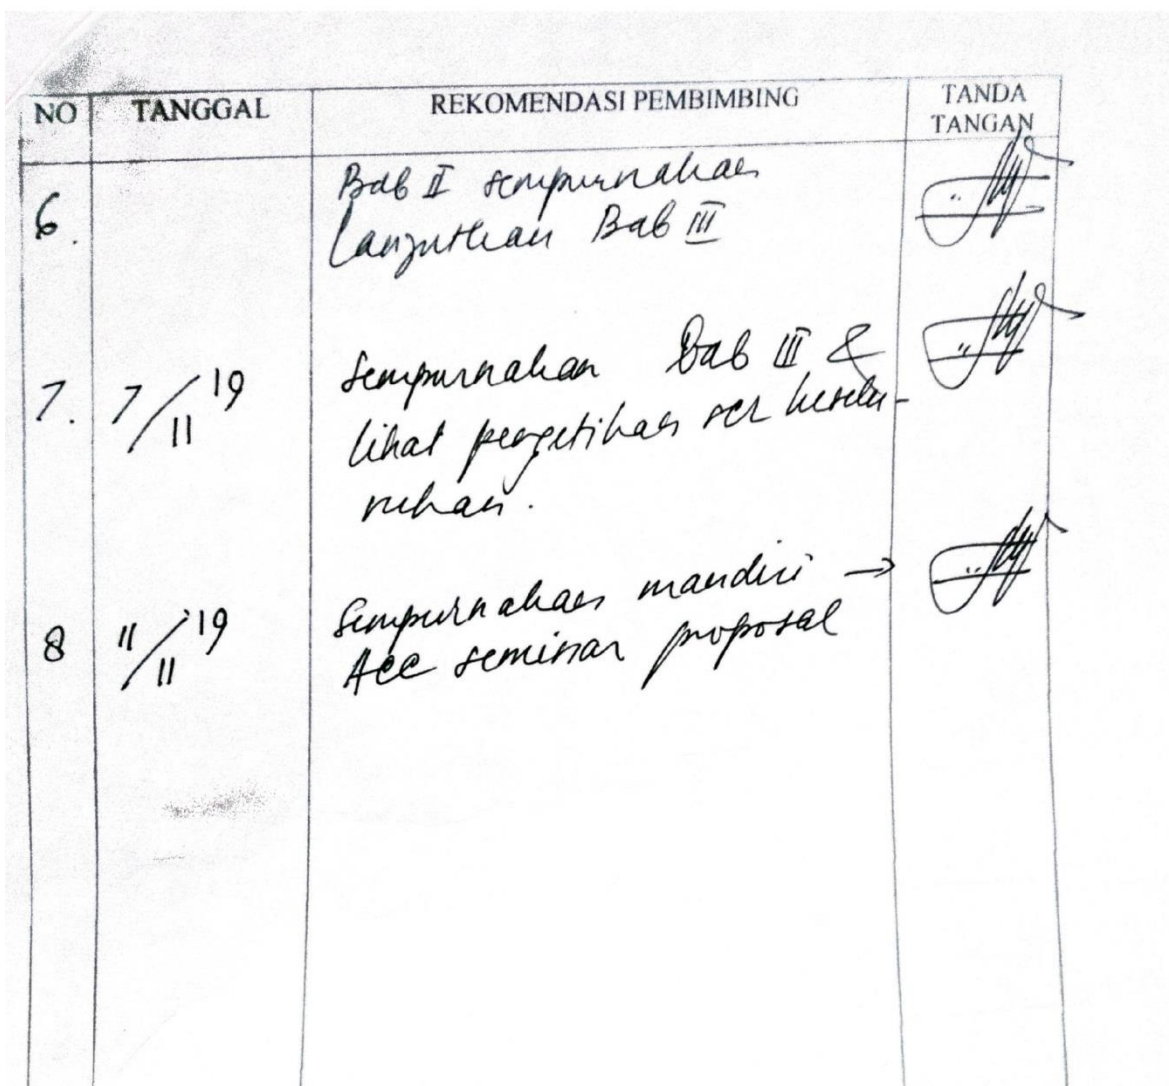 NO TANGGAL REKOMENDASI PEMBIMBING TANDA
TANGAN
6. Bab II sempurnakan
Lanjutkan Bab III
Sempurnakan Bab III &
7. 7/11 19 lihat pengetikan scr keselu-
ruhan.
Sempurnakan mandiri →
8 11/11 '19 Acc seminar proposal